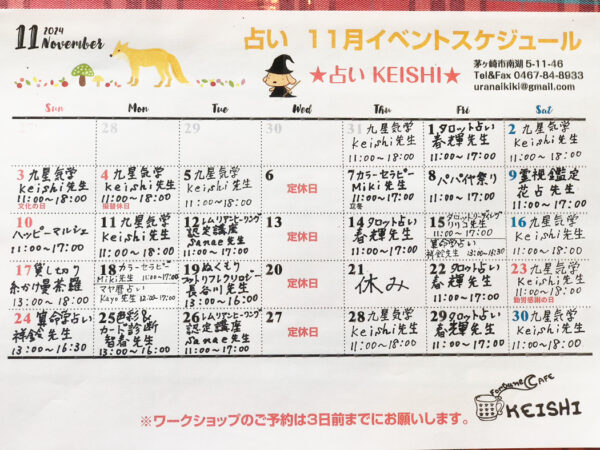 11 2024
November
占い 11月イベントスケジュール
★占い KEISHI★
茅ヶ崎市南湖 5-11-46
Tel&Fax 0467-84-8933
uranaikiki@gmail.com
Sun Mon Tue Wed Thu Fri Sat
27 28 29 30
31 九星気学
Keishi先生
11:00~18:00
1 タロット占い
春輝先生
11:00~17:00
2 九星気学
Keishi先生
11:00~18:00
3 九星気学
Keishi先生
11:00~18:00
文化の日
4 九星気学
Keishi先生
11:00~18:00
振替休日
5 九星気学
Keishi先生
11:00~18:00
6
定休日
7 カラーセラピー
Miki先生
11:00~17:00
立冬
8 パパイヤ祭り
11:00~17:00
9 霊視鑑定
花占先生
11:00~17:00
10
ハッピーマルシェ
11:00~17:00
11 九星気学
Keishi先生
11:00~18:00
12 レムリアンヒーリング
認定講座
Sanae先生
11:00~18:00
13
定休日
14 タロット占い
春輝先生
11:00~17:00
15 タロットリーディング
リリコ先生
11:00~17:00
算命学占い
祥鈴先生 13:00~16:30
16 九星気学
Keishi先生
11:00~18:00
17 貸し切り
糸かけ曼荼羅
13:00~18:00
18 カラーセラピー
Miki先生 11:00~17:00
マヤ暦占い
Kayo先生 12:00~17:00
19 ぬくもり
フットリフレクソロジー
長谷川先生
13:00~16:00
20
定休日
21
休み
22 タロット占い
春輝先生
11:00~17:00
23 九星気学
Keishi先生
11:00~18:00
勤労感謝の日
24 算命学占い
祥鈴先生
13:00~16:30
25 色彩&
カード診断
智春先生
13:00~17:00
26 レムリアンヒーリング
認定講座
Sanae先生
11:00~18:00
27
定休日
28 九星気学
Keishi先生
11:00~18:00
29 タロット占い
春輝先生
11:00~17:00
30 九星気学
Keishi先生
11:00~18:00
Fortune Cafe
KEISHI
※ワークショップのご予約は3日前までにお願いします。